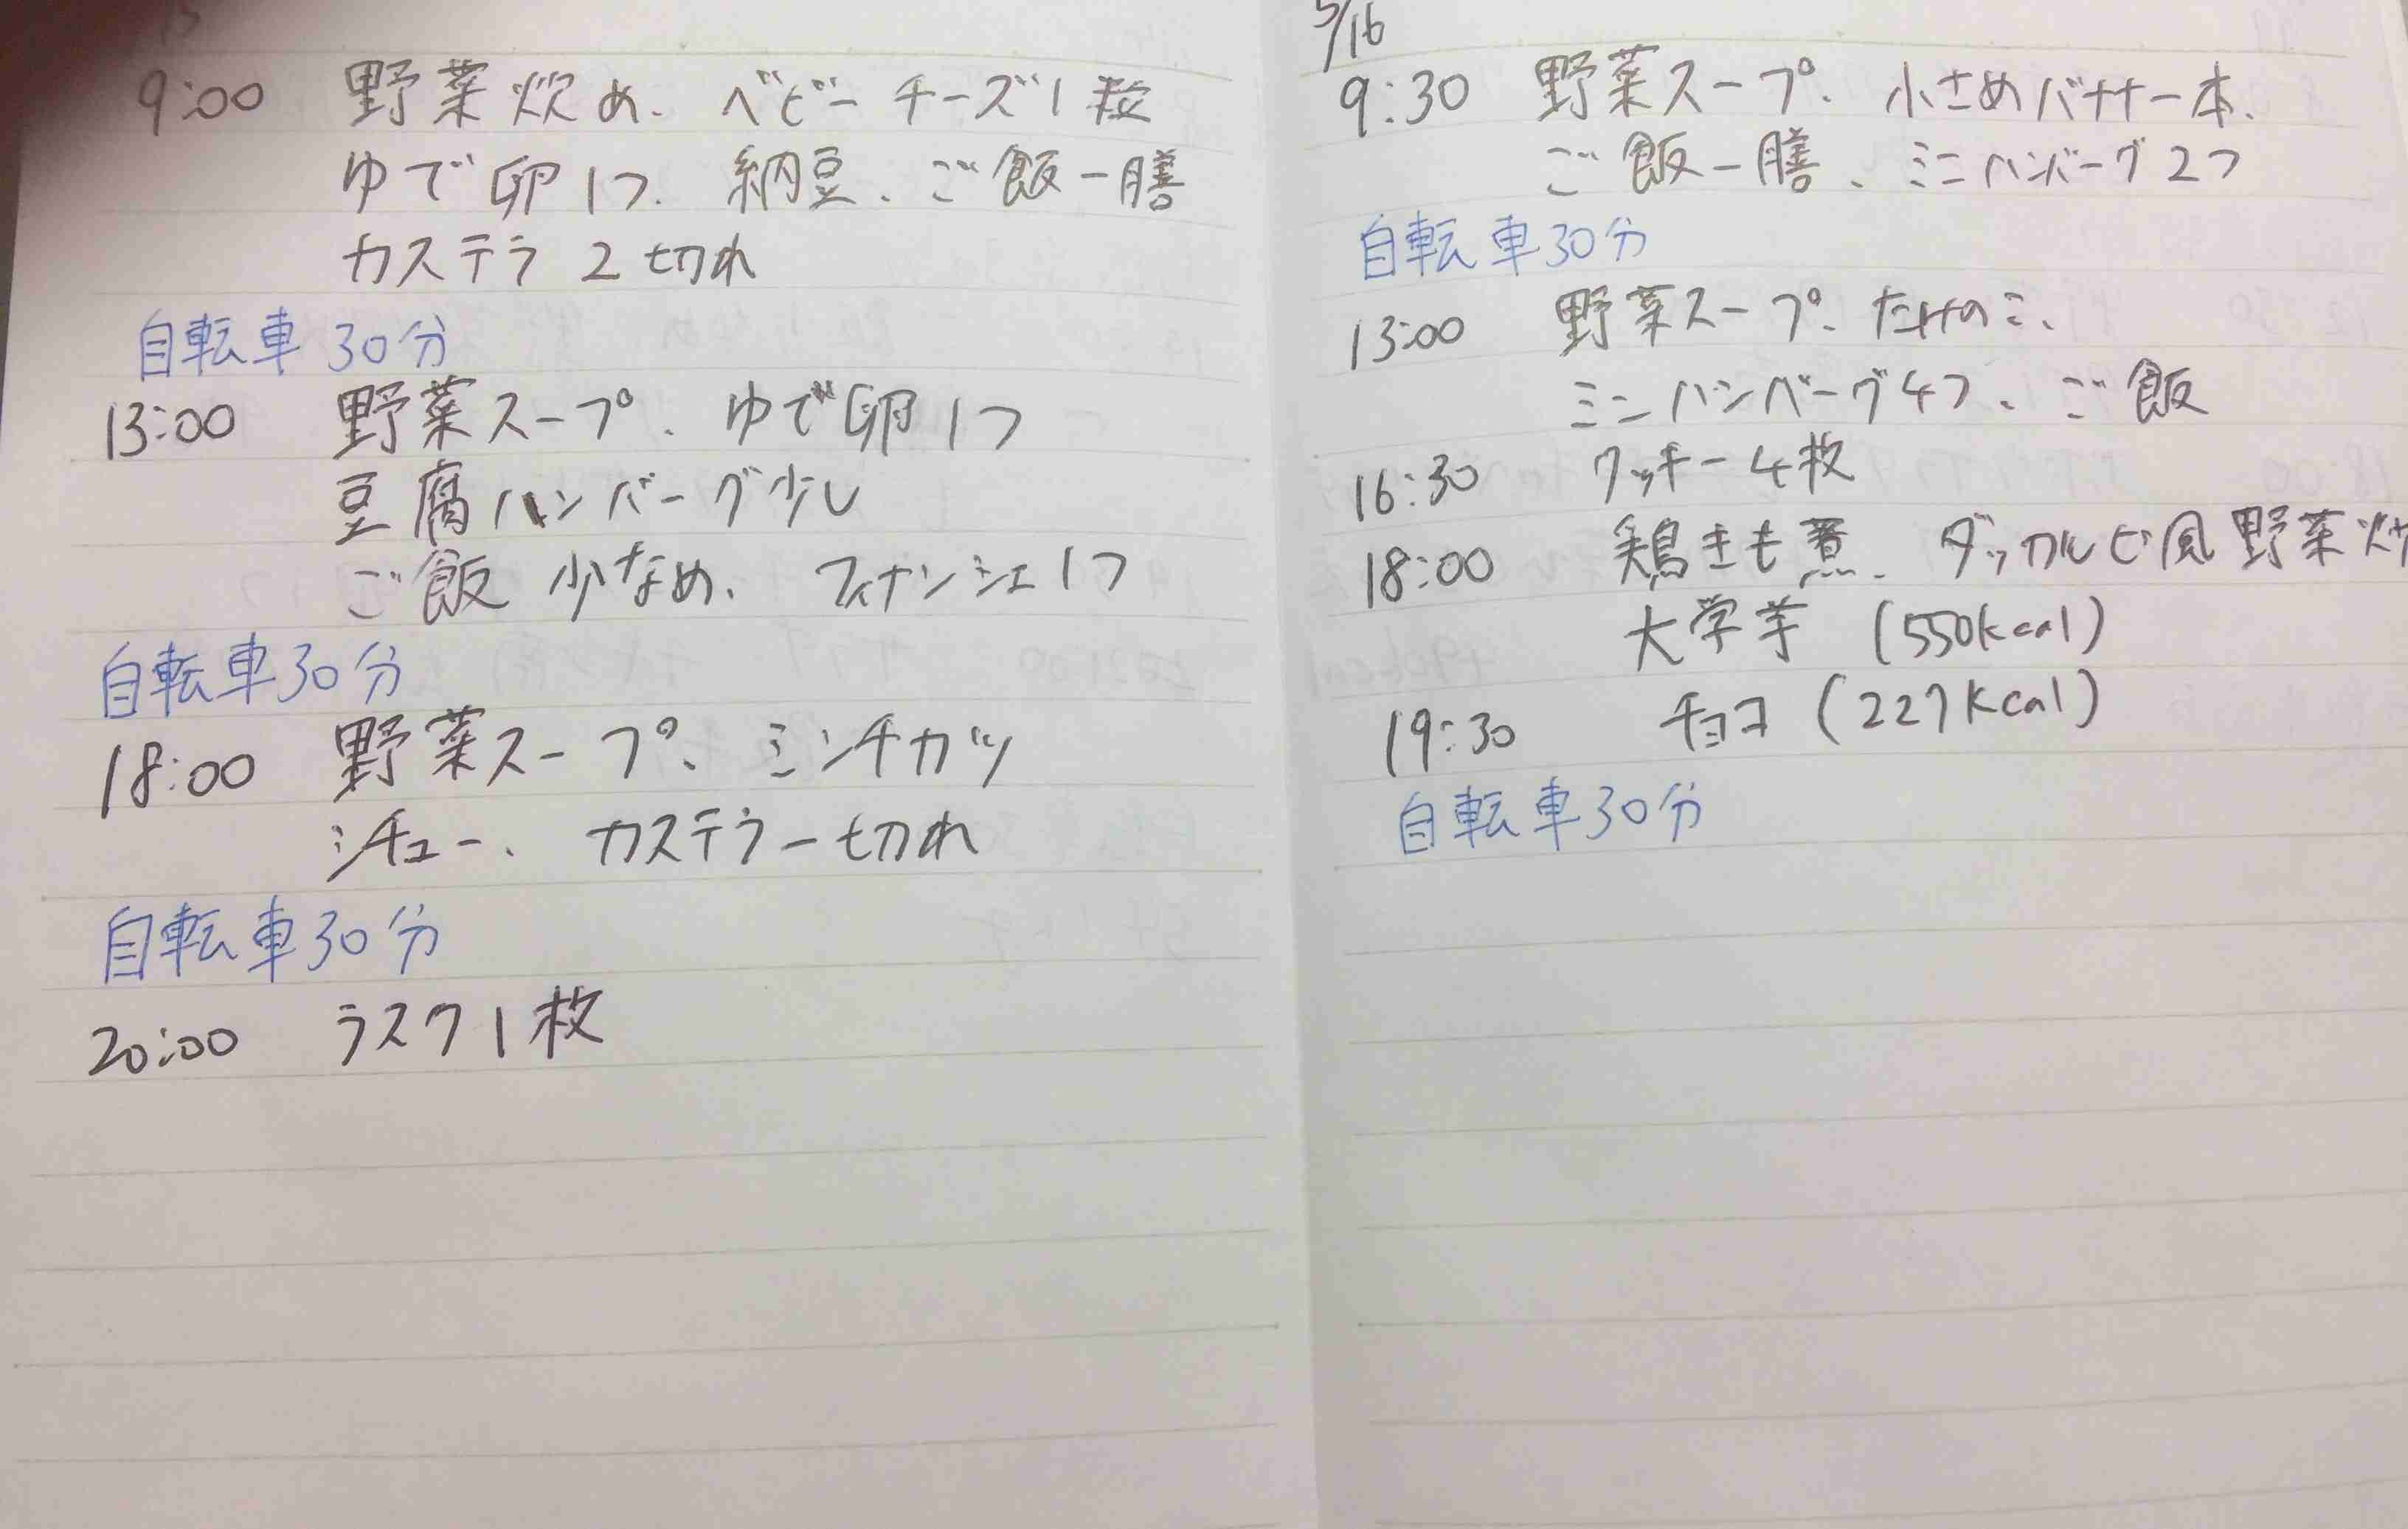 15
9:00 野菜炊め、ベビーチーズ1粒
ゆで卵1つ、納豆、ご飯一膳
カステラ 2切れ
自転車 30分
13:00 野菜スープ、ゆで卵1つ
豆腐ハンバーグ少し
ご飯 少なめ、フィナンシェ1つ
自転車30分
18:00 野菜スープ、ミンチカツ
シチュー、カステラ一切れ
自転車30分
20:00 ラスク1枚
5/16
9:30 野菜スープ、小さめバナナ一本、
ご飯一膳、ミニハンバーグ2つ
自転車30分
13:00 野菜スープ、たけのこ、
ミニハンバーグ4つ、ご飯
16:30 クッキー4枚
18:00 鶏きも煮、ダッカルビ風野菜炒
大学芋 (550kcal)
19:30 チョコ (227kcal)
自転車30分